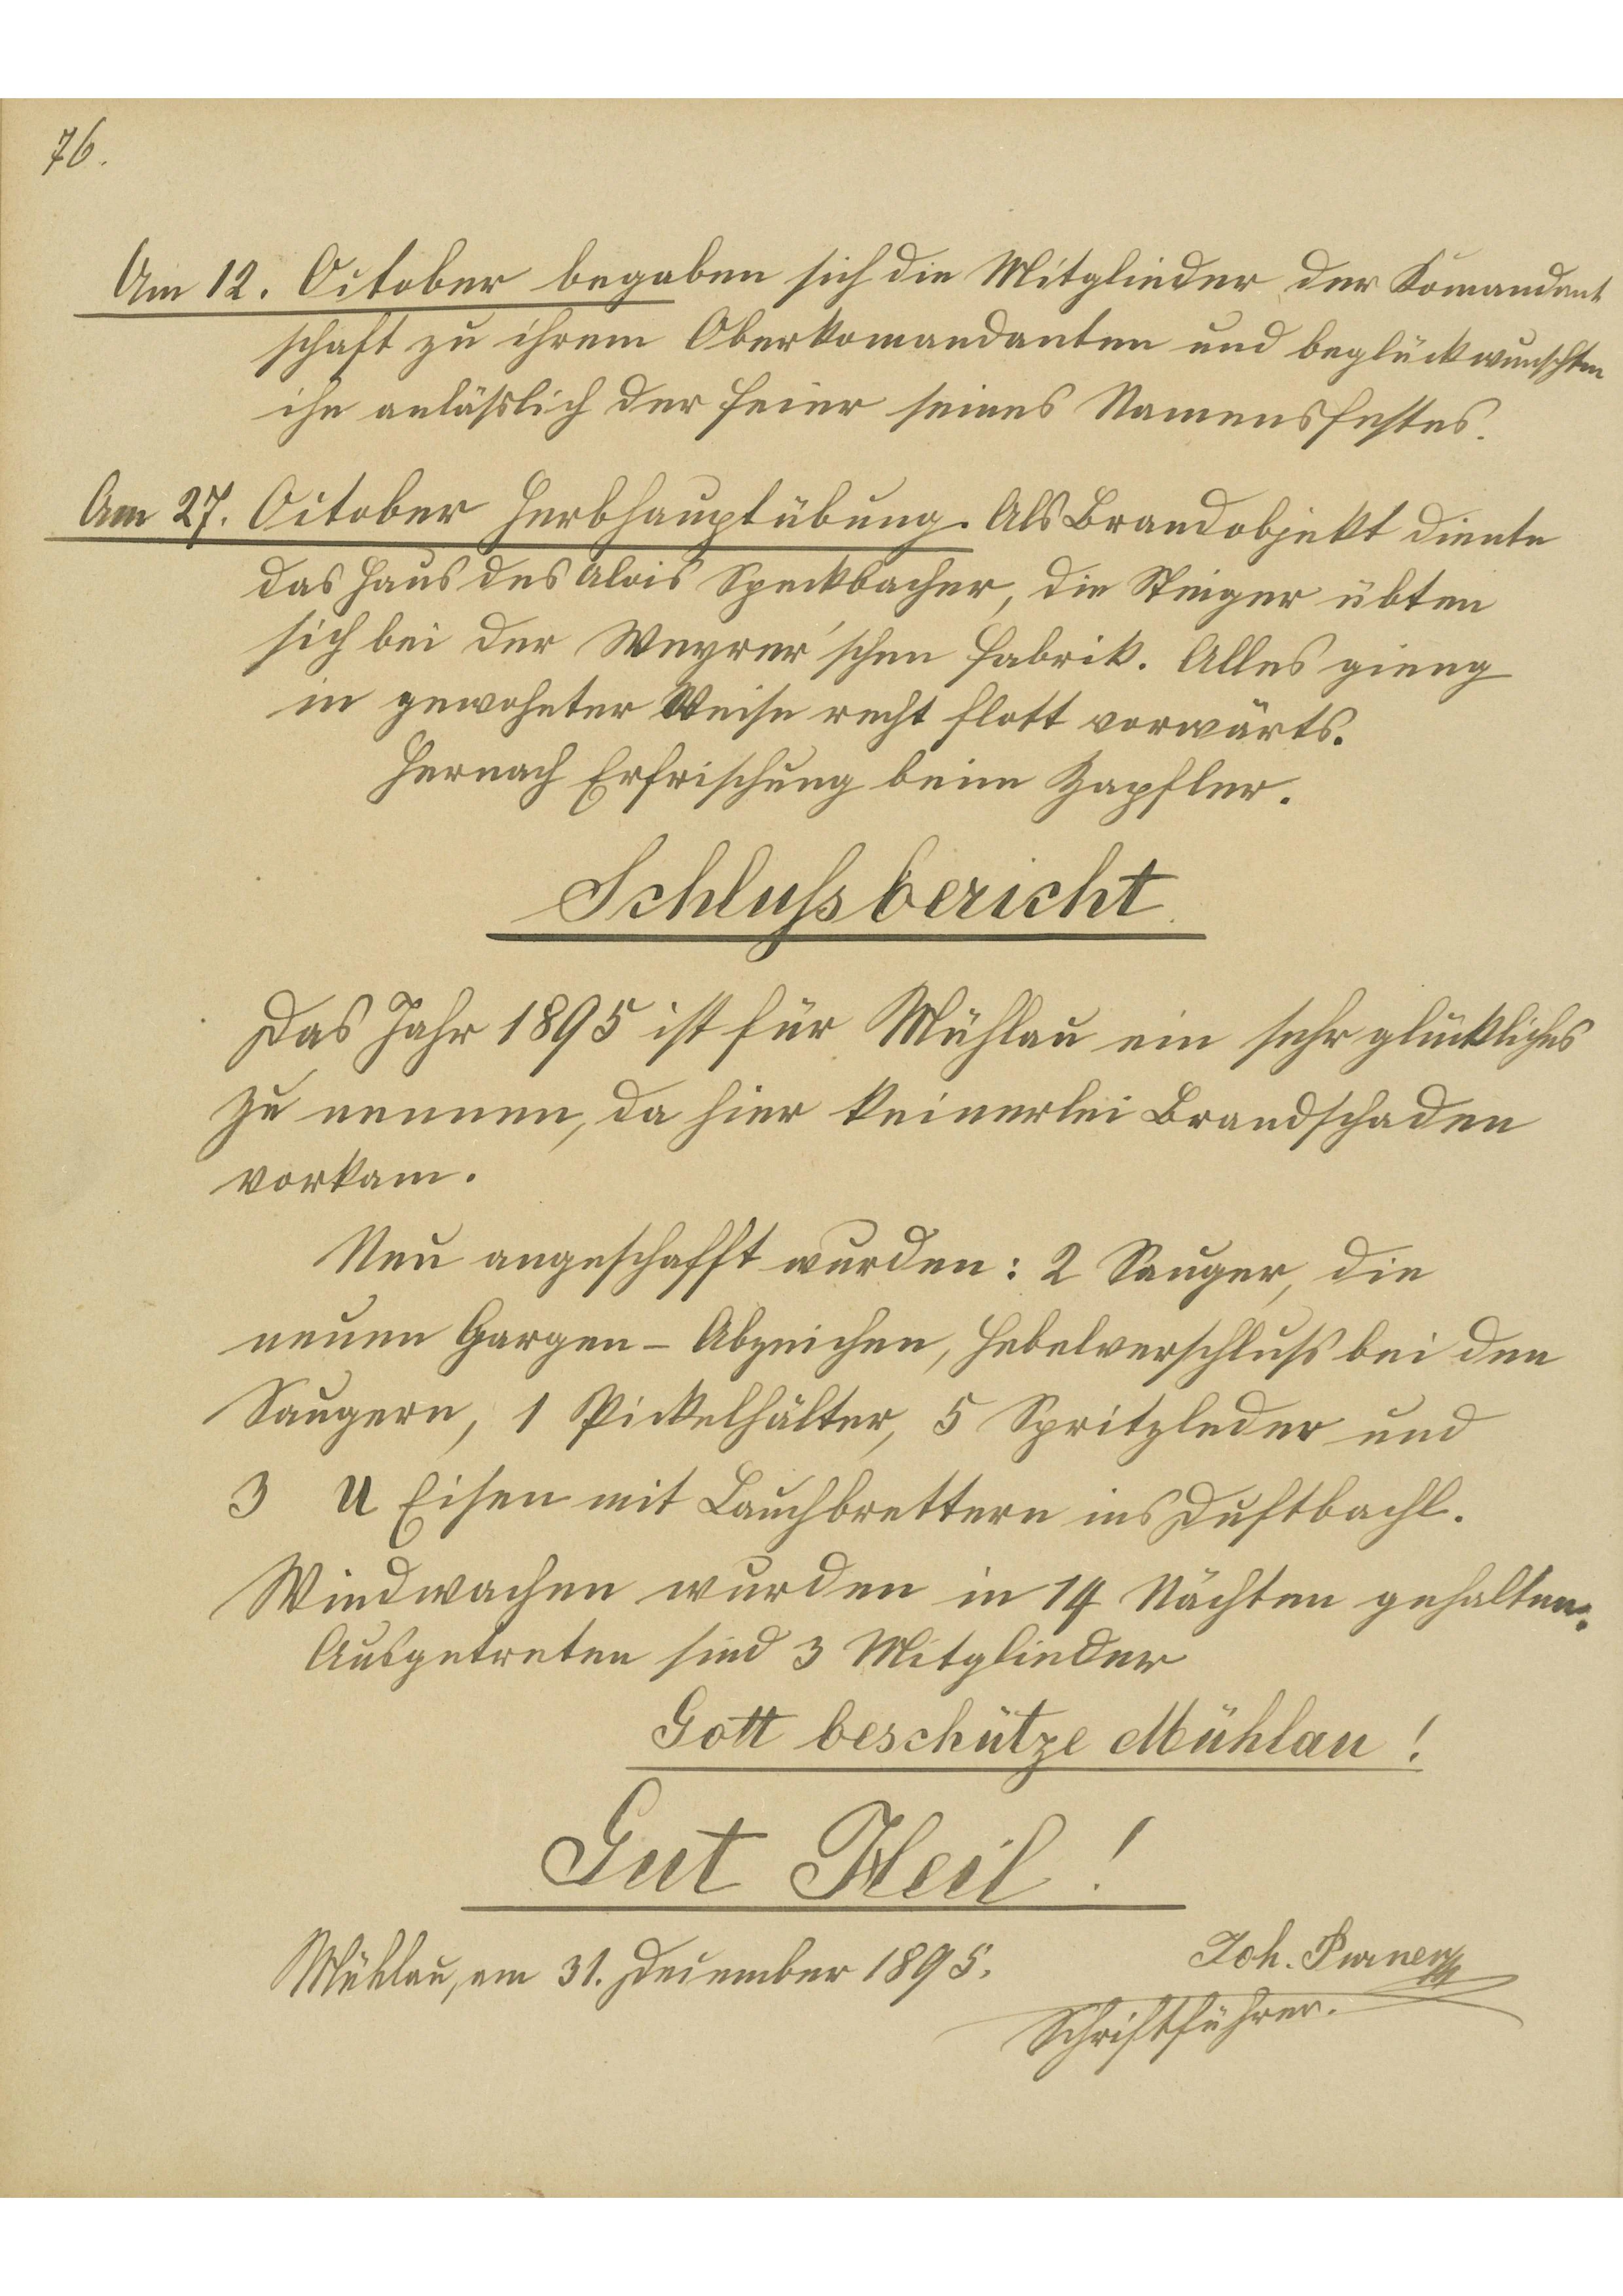 76.
Am 12. October begaben sich die Mitglieder der Komandant
schaft zu ihrem Oberkomandanten und beglückwunschten
ihn anläßlich der Feier seines Namensfestes.
Am 27. October Herbhauptübung. Als Brandobjekt diente
das Haus des Alois Speckbacher, die Steiger übten
sich bei der Weyrer'schen Fabrik. Alles gieng
in gewohnter Weise recht flott vorwärts.
Hernach Erfrischung beim Zapfler.
Schlußbericht
Das Jahr 1895 ist für Mühlau ein sehr glückliches
zu nennen, da hier keinerlei Brandschaden
vorkam.
Neu angeschafft wurden: 2 Sauger, die
neuen Chargen-Abzeichen, Hebelverschluß bei den
Saugern, 1 Pickelhälter, 5 Spritzleder und
3 U Eisen mit ins Duftbachl.
Windwachen wurden in 14 Nächten gehalten.
Ausgetreten sind 3 Mitglieder
Gott beschütze Mühlau!
Gut Heil!
Mühlau, am 31. December 1895.
Joh. Purner
Schriftführer.